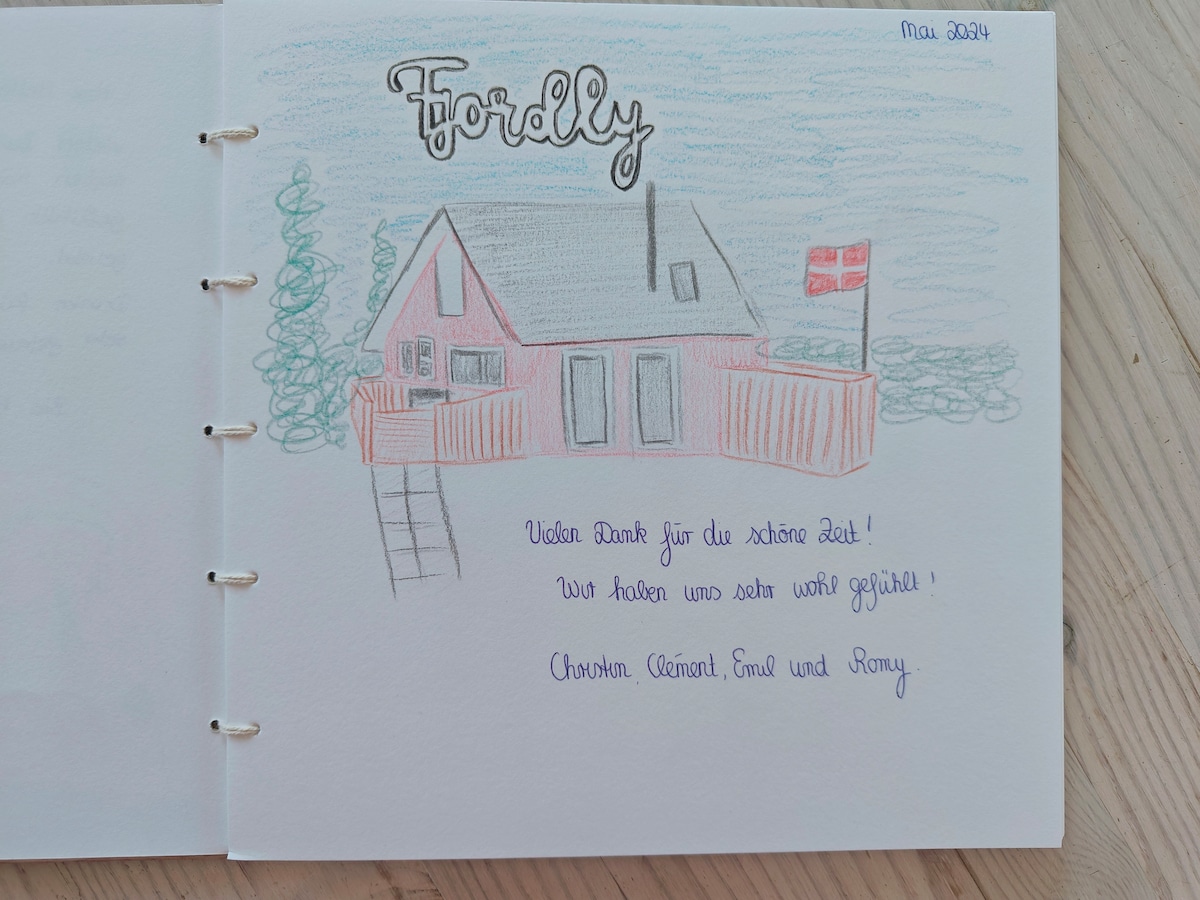 Mai 2024
Fjordlly
Vielen Dank für die schöne Zeit!
Wir haben uns sehr wohl gefühlt!
Christin, Clément, Emil und Romy.